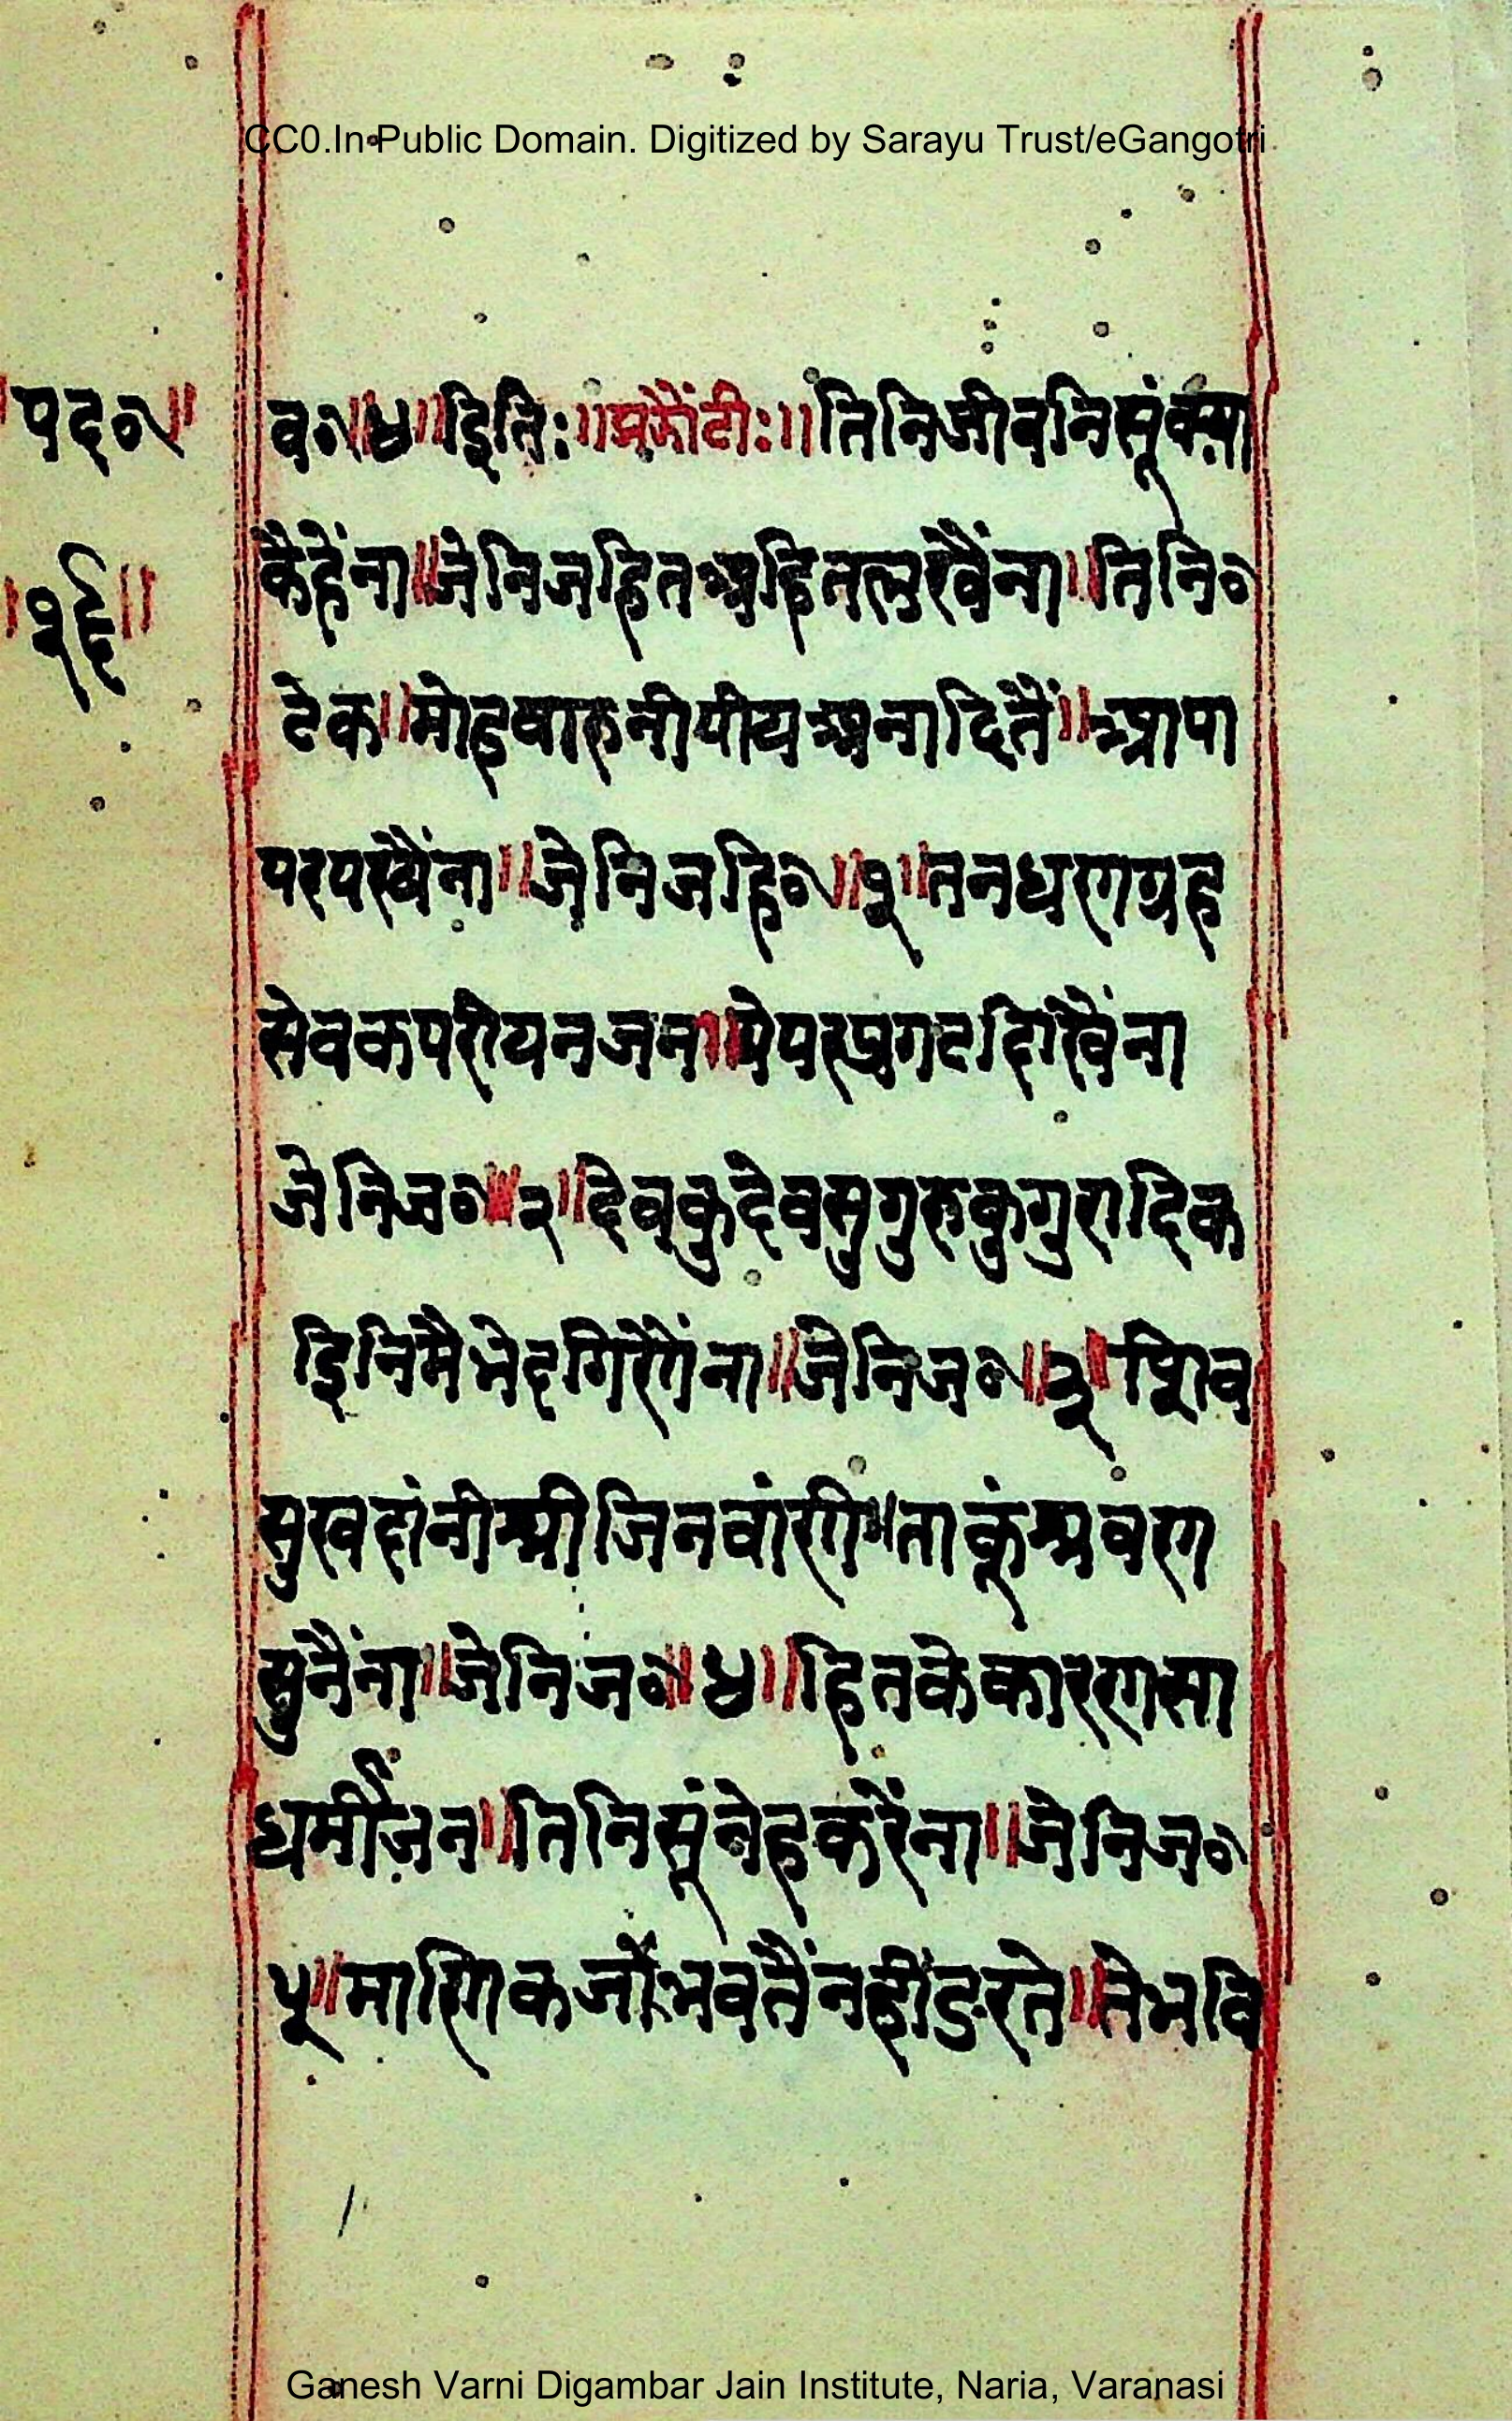 CC0.In Public Domain. Digitized by Sarayu Trust/eGangotri
॥पद०॥
॥१६॥
व०॥४॥इितिः॥झंझौटीः॥तिनिजीवनिसूंक्या
कैहैंना॥जेनिजहितअहितलखैंना॥तिनि०
टेक॥मोहवारुनीपीयअनादितैं॥आपा
परपरखैंना॥जेनिजहि०॥१॥तनधरणग्रह
सेवकपरीयनजन॥येपरप्रगटदिखैंना
जेनिज०॥२॥देवकुदेवसुगुरुकुगुरादिक
इिनिमैभेदगिरेगेंना॥जेनिज०॥३॥शिव
सुखदांनीश्रीजिनवांणी॥ताकूंश्रवण
सुनैंना॥जेनिज०॥४॥हितकेकारणसा
धर्मीजन॥तिनिसूंनेहकरैंना॥जेनिज०
५॥माणिकजोभवतैंनहींडरते॥तेभवि
Ganesh Varni Digambar Jain Institute, Naria, Varanasi